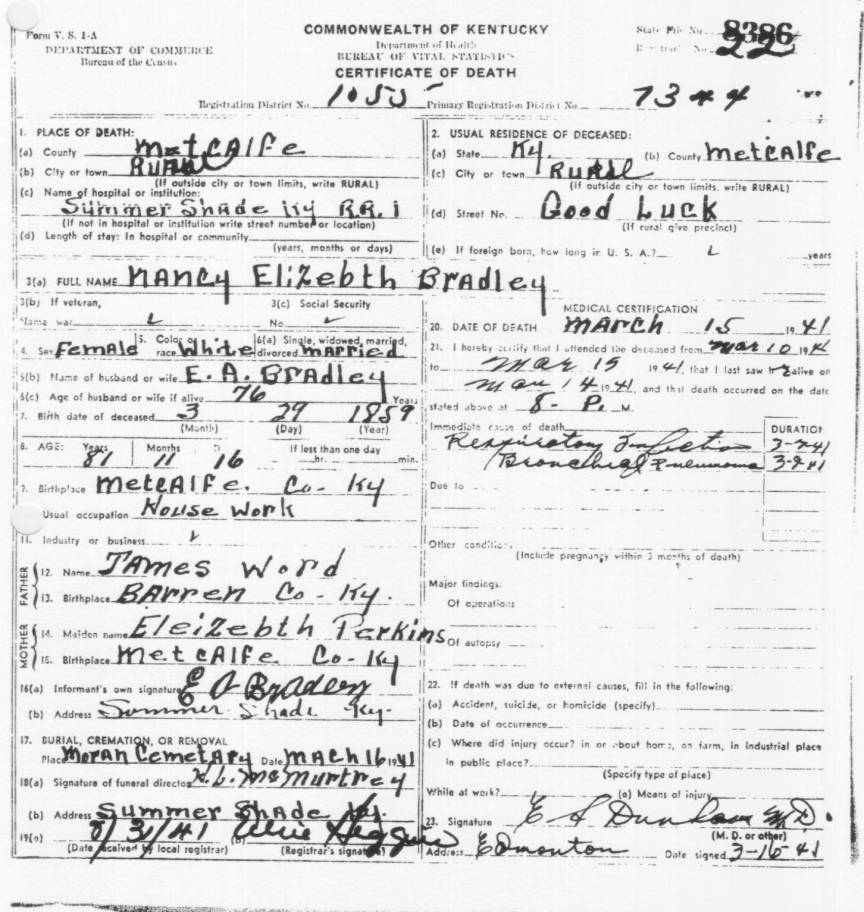 Form V. S. 1-A
DEPARTMENT OF COMMERCE
Bureau of the Census
COMMONWEALTH OF KENTUCKY
Department of Health
BUREAU OF VITAL STATISTICS
CERTIFICATE OF DEATH
State File No. 8386
Registrar's No. 22
Registration District No. 1055 Primary Registration District No. 7344
1. PLACE OF DEATH:
(a) County Metcalfe
(b) City or town Rural
(If outside city or town limits, write RURAL)
(c) Name of hospital or institution:
Summer Shade Ky R.R. 1
(If not in hospital or institution write street number or location)
(d) Length of stay: In hospital or community
(years, months or days)
2. USUAL RESIDENCE OF DECEASED:
(a) State Ky. (b) County Metcalfe
(c) City or town Rural
(If outside city or town limits, write RURAL)
(d) Street No. Good Luck
(If rural give precinct)
(e) If foreign born, how long in U. S. A.? years
3(a) FULL NAME Nancy Elizebth Bradley
3(b) If veteran,
Name war
3(c) Social Security
No.
4. Sex Female 5. Color or race White 6(a) Single, widowed, married, divorced married
6(b) Name of husband or wife E. A. Bradley
6(c) Age of husband or wife if alive 76 Years
7. Birth date of deceased 3 29 1859
(Month) (Day) (Year)
8. AGE: Years Months D If less than one day
81 11 16 hr. min.
9. Birthplace Metcalfe. Co - Ky
Usual occupation House Work
11. Industry or business
FATHER
12. Name James Word
13. Birthplace Barren Co - Ky.
MOTHER
14. Maiden name Eleizebth Perkins
15. Birthplace Metcalfe Co-Ky
16(a) Informant's own signature E A Bradley
(b) Address Summer Shade Ky.
17. BURIAL, CREMATION, OR REMOVAL
Place Moran Cemetary Date Mach 16 1941
18(a) Signature of funeral director H. L. McMurtrey
(b) Address Summer Shade Ky.
19(a) (b)
(Date received by local registrar) (Registrar's signature)
MEDICAL CERTIFICATION
20. DATE OF DEATH March 15 1941
21. I hereby certify that I attended the deceased from Mar 10 19
to Mar 15 1941, that I last saw h alive on
Mar 14 1941, and that death occurred on the date
stated above at 8- P. M.
Immediate cause of death DURATION
Respiratory Infection 3-9-41
Bronchial Pneumonia 3-9-41
Due to
Other condition
(Include pregnancy within 3 months of death)
Major findings:
Of operations
Of autopsy
22. If death was due to external causes, fill in the following:
(a) Accident, suicide, or homicide (specify)
(b) Date of occurrence
(c) Where did injury occur? in or about home, on farm, in industrial place
in public place?
(Specify type of place)
While at work? (e) Means of injury
23. Signature E S Dunham M.D.
(M. D. or other)
Address Edmonton Date signed 3-16-41